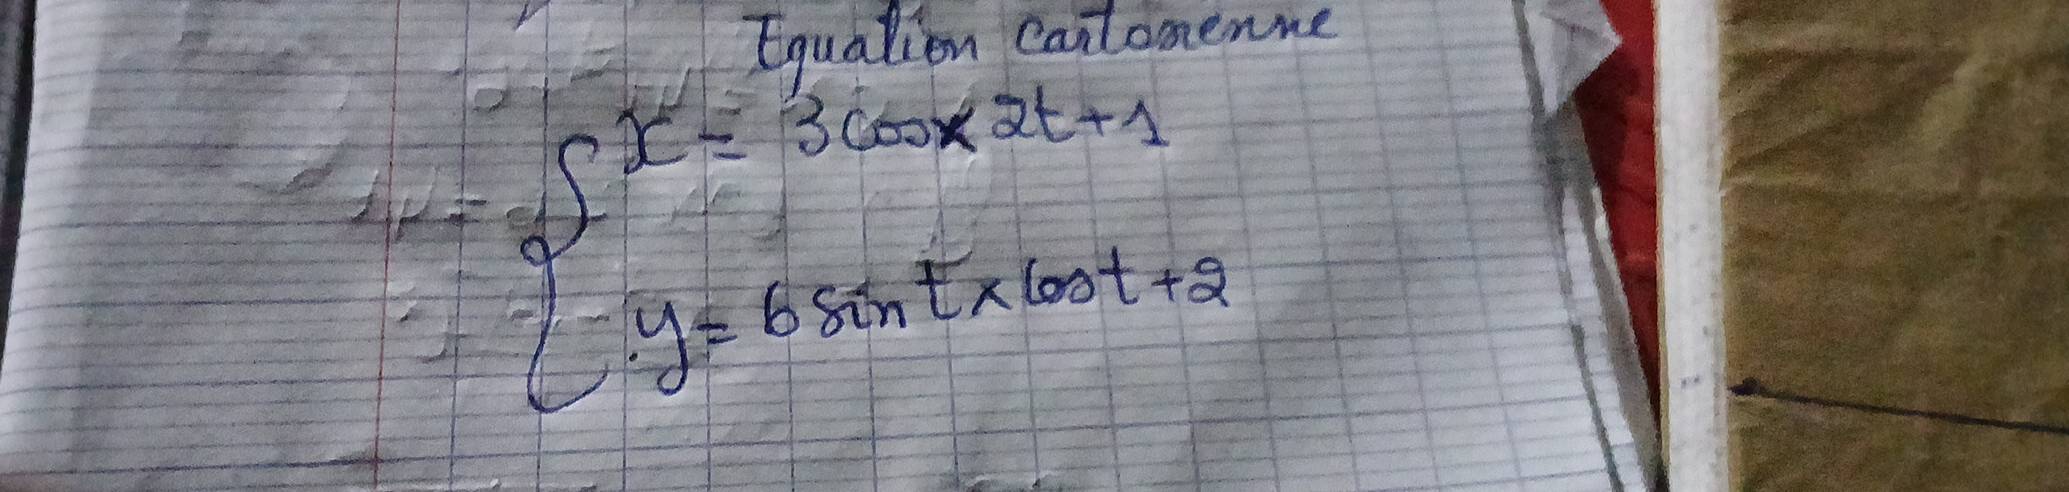 Equation cartomenne
x = 3 cos 2t + 1
y = 6 sin t × cos t + 2